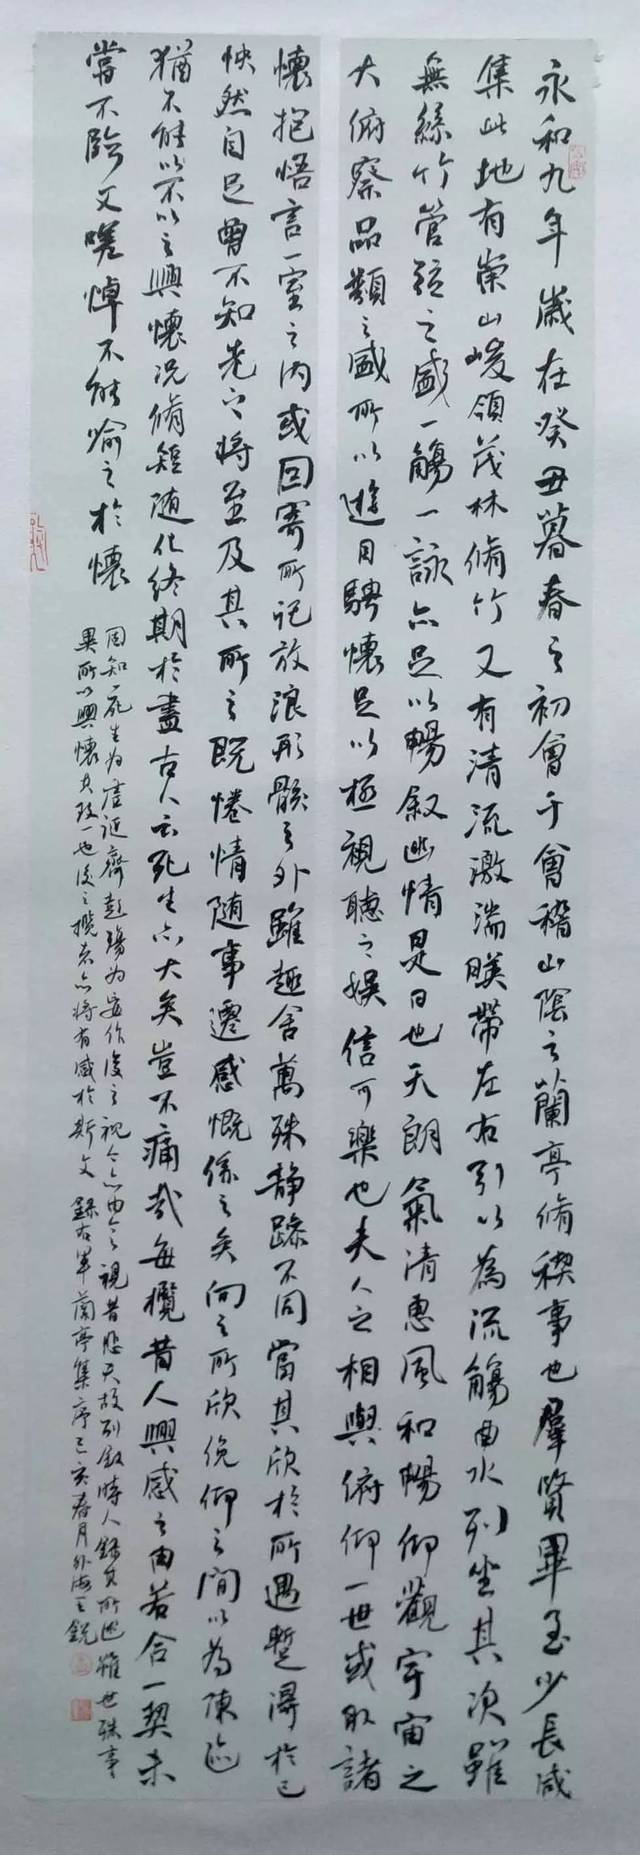 永和九年歲在癸丑暮春之初會于會稽山陰之蘭亭脩稧事也羣賢畢至少長咸
集此地有崇山峻領茂林脩竹又有清流激湍暎帶左右引以為流觴曲水列坐其次雖
無絲竹管弦之盛一觴一詠亦足以暢叙幽情是日也天朗氣清惠風和暢仰觀宇宙之
大俯察品類之盛所以遊目騁懷足以極視聽之娛信可樂也夫人之相與俯仰一世或取諸
懷抱悟言一室之內或因寄所託放浪形骸之外雖趣舍萬殊静躁不同當其欣於所遇暫得於己
怏然自足曾不知老之將至及其所之既惓情隨事遷感慨係之矣向之所欣俛仰之間以為陳迹
猶不能以不以之興懷況脩短隨化終期於盡古人云死生亦大矣豈不痛哉每攬昔人興感之由若合一契未
嘗不臨文嗟悼不能喻之於懷
固知一死生為虛誕齊彭殤為妄作後之視今亦由今之視昔悲夫故列叙時人錄其所述雖世殊事
異所以興懷其致一也後之攬者亦將有感於斯文 錄右軍蘭亭集序己亥春月外海王銳